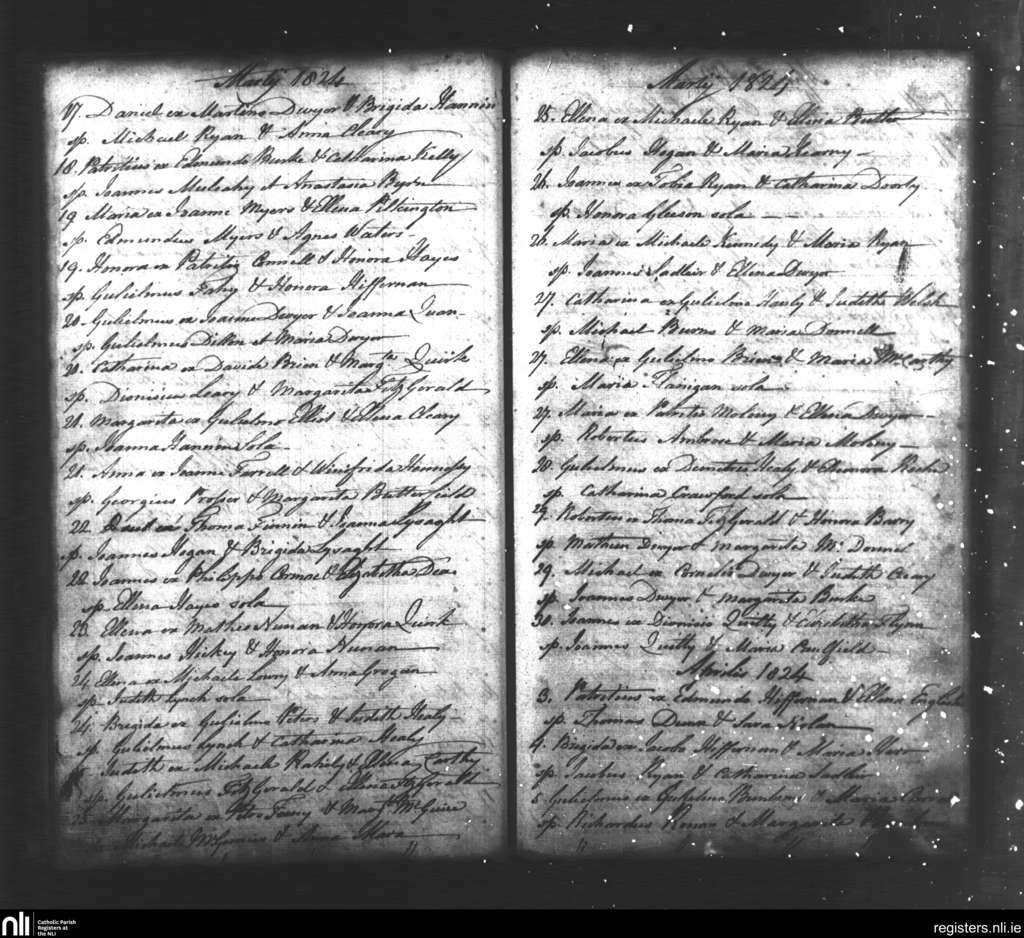 Martij 1824
17. Daniel ex Martino Dwyer & Brigida Hannin
sp. Michael Ryan & Anna Cleary
18. Patritius ex Edmundo Burke & Catharina Kelly
sp. Joannes Mulcahy et Anastasia Byrn
19 Maria ex Joanne Myers & Ellena Pilkington
sp. Edmundus Myers & Agnes Waters
19. Honora ex Patritio Connell & Honora Hayes
sp. Gulielmus Fahy & Honora Hiffernan
20. Gulielmus ex Joanne Dwyer & Joanna Quan
sp. Gulielmus Dillon et Maria Dwyer
20. Catharina ex Davide Brien & Margta Quirk
sp. Dionisius Leary & Margarita FitzGerald
20. Margarita ex Gulielmo Elliot & Ellena Cleary
sp. Joanna Hannin Sola
21. Anna ex Joanne Farrell & Winifrida Hennessy
sp. Georgius Prosser & Margarita Butterfield
22. ex Thoma Finnin & Joanna Lysaght
sp. Joannes Hogan & Brigida Lysaght
22. Joannes ex Philippo Cormac & Elizabetha Dea
sp. Ellena Hayes sola
23. Ellena ex Matheo Nunan & Honora Quirk
sp. Joannes Hickey & Honora Nunan
24. Ellena ex Michaele Lowry & Anna Grogan
sp. Judith Lynch sola
24. Brigida ex Gulielmo Peters & Judith Healy
sp. Gulielmus Lynch & Catharina Healy
Judith ex Michaele & Ellena Carthy
sp. Gulielmus FitzGerald & Ellena FitzGerald
25 Margarita ex Petro & Margt McGuire
Michaele McGinnis & Anna
Martij 1824
25. Ellena ex Michaele Ryan & Ellena Butler
sp. Jacobus Hogan & Maria Kearny
26. Joannes ex Tobia Ryan & Catharina Doorly
sp. Honora Gleeson sola
26. Maria ex Michaele Kennedy & Maria Ryan
sp. Joannes Sadleir & Ellena Dwyer
27. Catharina ex Gulielmo Hawly & Judetha Welsh
sp. Michael Burns & Maria Donnell
27. Ellena ex Gulielmo Brien & Maria McCarthy
sp. Maria Flanigan sola
27. Maria ex Patritio Molony & Ellena Dwyer
sp. Robertus Ambrose & Maria Molony
28. Gulielmus ex Demetrio Healy & Eleanora
sp. Catharina Crawford sola
29. Robertus ex Thoma FitzGerald & Honora Barry
sp. Matheus Dwyer & Margarita McDonnel
29. Michael ex Cornelio Dwyer & Judith Cleary
sp. Joannes Dwyer & Margarita Burke
30. Joannes ex Dionisio Quilty & Elizabetha Flynn
sp. Joannes Quilty & Maria Caulfield
Aprilis 1824
3. Patritius ex Edmundo Heffernan & Ellena English
sp. Thomas Dunn & Sara Nolan
4. Brigida ex Jacobo Heffernan & Maria
sp. Jacobus Ryan & Catharina Sadlier
5 Gulielmus ex Gulielmo & Maria
sp. Richardus & Margarita
nli
Catholic Parish
Registers at
the NLI
registers.nli.ie